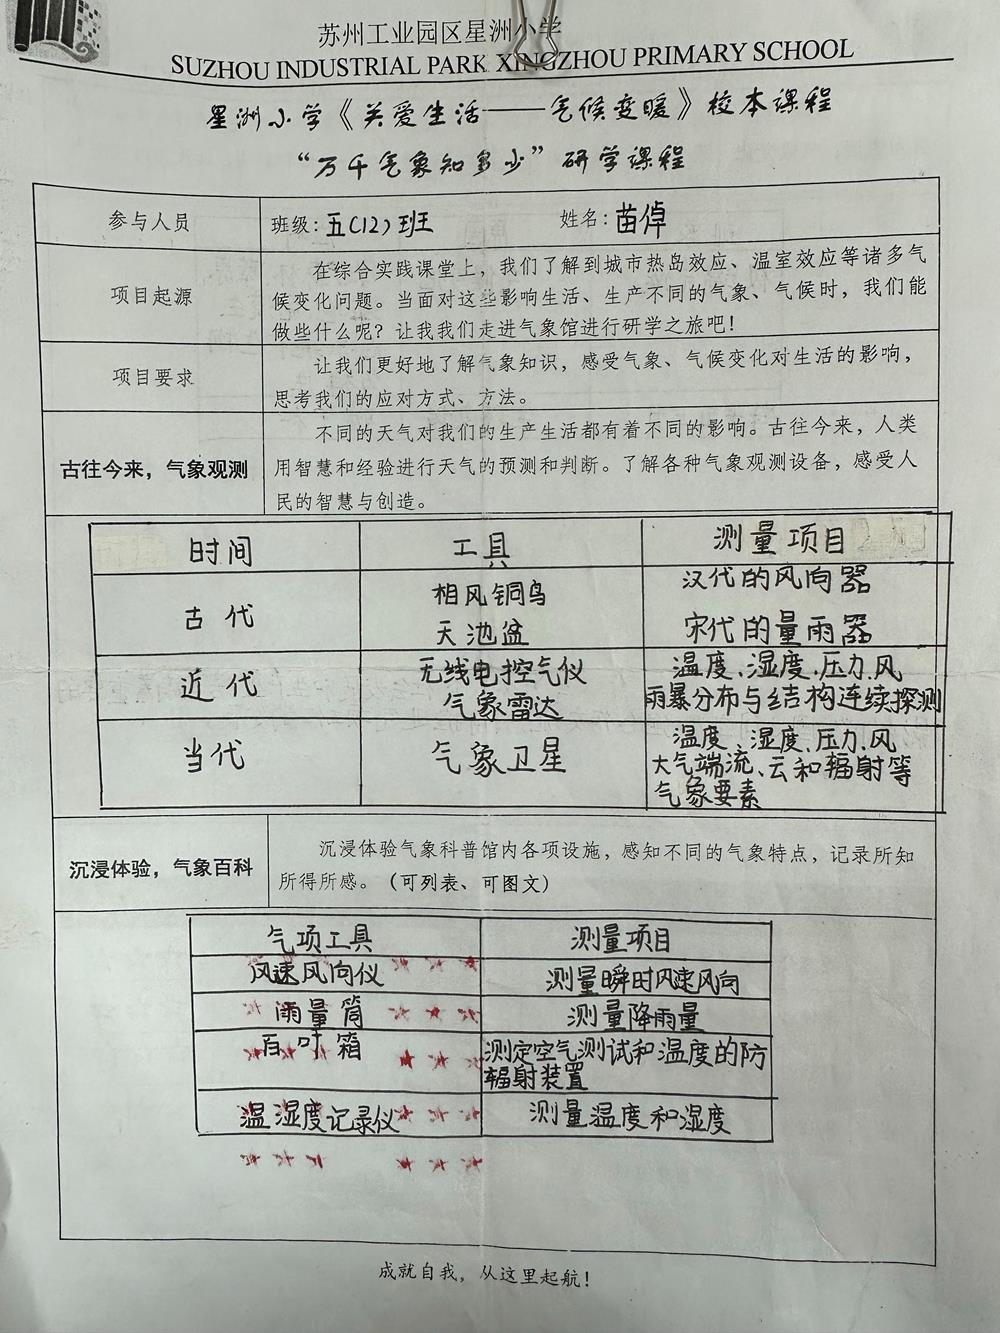 苏州工业园区星洲小学
SUZHOU INDUSTRIAL PARK XINGZHOU PRIMARY SCHOOL
星洲小学《关爱生活——气候变暖》校本课程
“万千气象知多少”研学课程
参与人员 班级：五(12)班 姓名：苗倬
项目起源
在综合实践课堂上，我们了解到城市热岛效应、温室效应等诸多气
候变化问题。当面对这些影响生活、生产不同的气象、气候时，我们能
做些什么呢？让我我们走进气象馆进行研学之旅吧！
项目要求
让我们更好地了解气象知识，感受气象、气候变化对生活的影响，
思考我们的应对方式、方法。
古往今来，气象观测
不同的天气对我们的生产生活都有着不同的影响。古往今来，人类
用智慧和经验进行天气的预测和判断。了解各种气象观测设备，感受人
民的智慧与创造。
时间 工具 测量项目
古代
相风铜鸟 汉代的风向器
天池盆 宋代的量雨器
近代
无线电探空气仪 温度、湿度、压力、风
气象雷达 雨暴分布与结构连续探测
当代 气象卫星
温度、湿度、压力、风
大气端流、云和辐射等
气象要素
沉浸体验，气象百科
沉浸体验气象科普馆内各项设施，感知不同的气象特点，记录所知
所得所感。（可列表、可图文）
气项工具 测量项目
风速风向仪 测量瞬时风速风向
雨量筒 测量降雨量
百叶箱
测定空气测试和温度的防
辐射装置
温湿度记录仪 测量温度和湿度
成就自我，从这里起航！